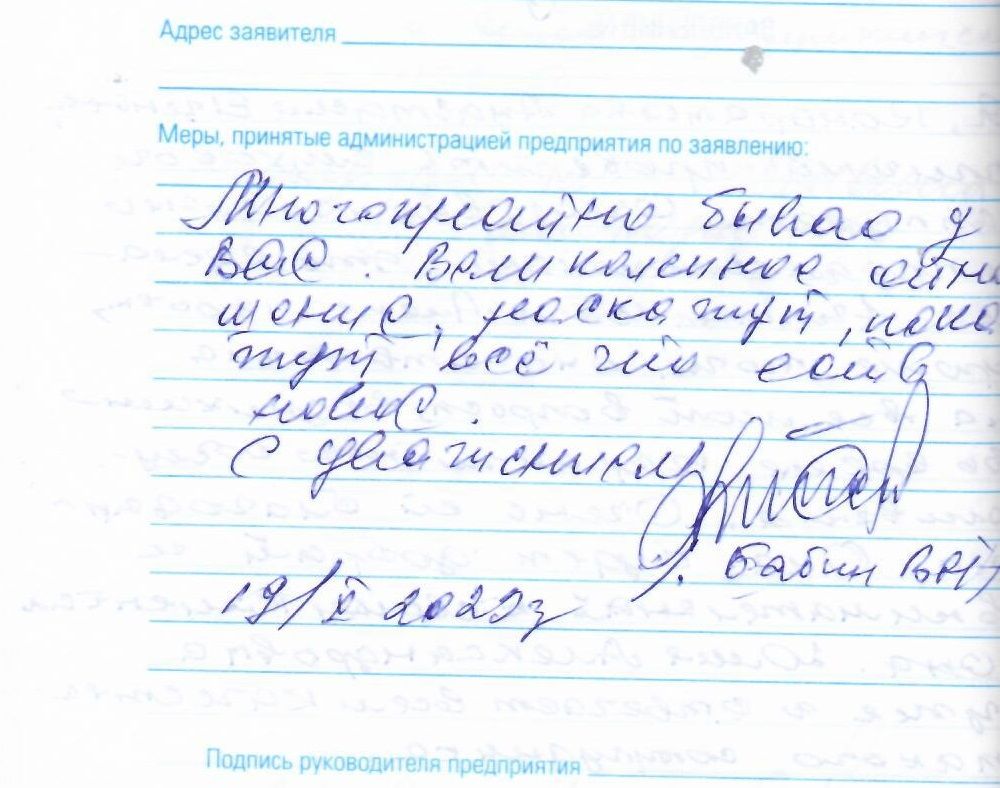 Адрес заявителя
Меры, принятые администрацией предприятия по заявлению:
Многократно бываю у
вас. Великолепное отно
шение, расскажут, пока
жут всё что есть в
новое
С уважением
Бабин
19/X 2020г
Подпись руководителя предприятия